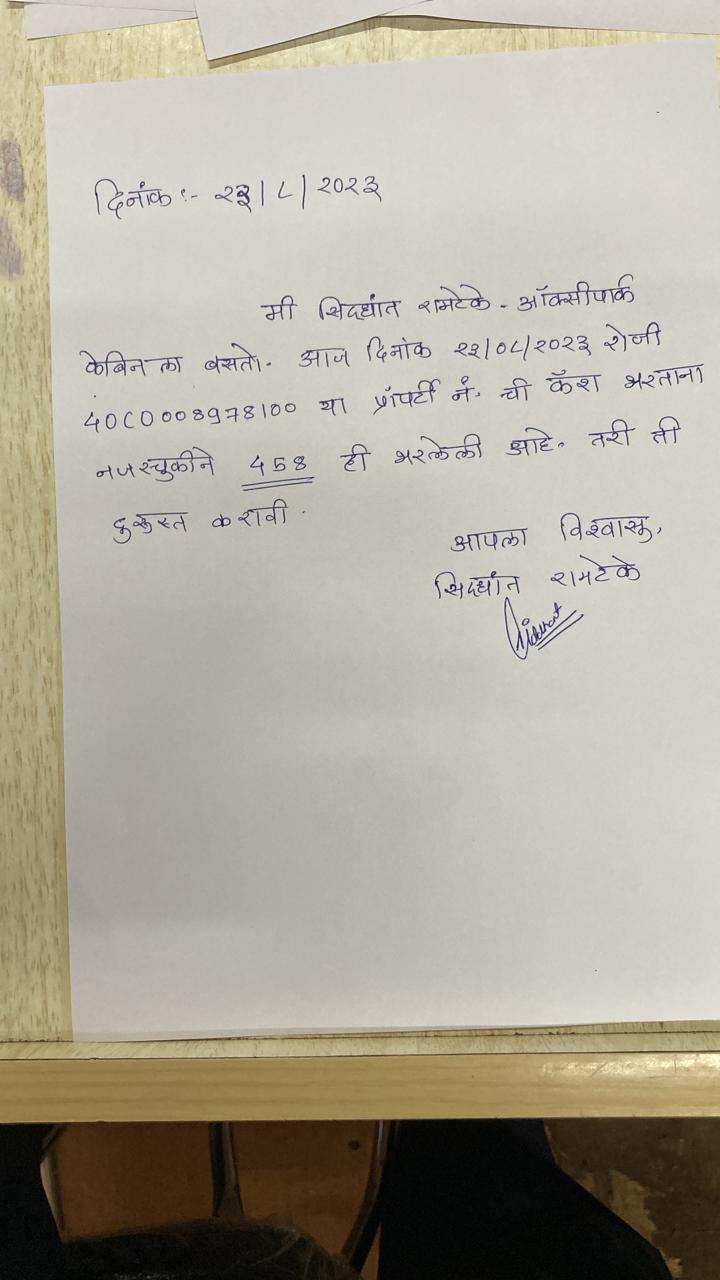 दिनांक :- २३/८/२०२३
मी सिध्दांत रामटेके - ऑक्सीपार्क
केबिन ला बसतो. आज दिनांक २३/०८/२०२३ रोजी
40C0008978100 या प्रॉपर्टी नं. ची कॅश भरताना
नजरचुकीने 458 ही भरलेली आहे. तरी ती
दुरुस्त करावी.
आपला विश्वासू,
सिध्दांत रामटेके